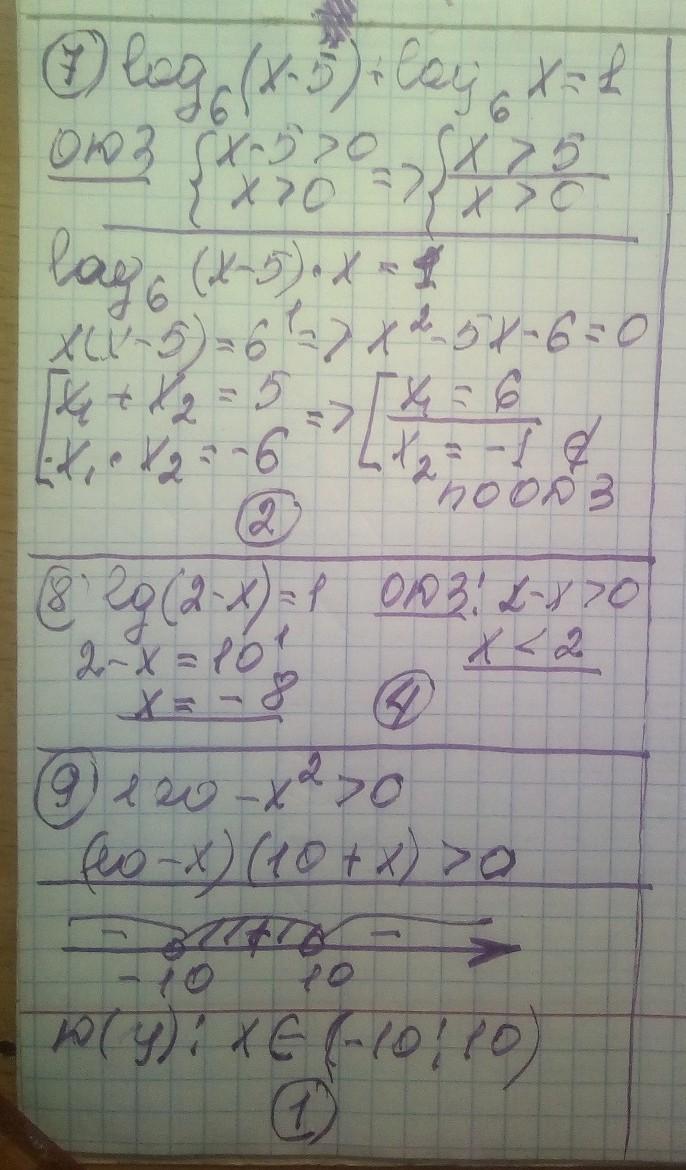 ⑦ log₆(x-5)+log₆ x=1
ОДЗ {x-5>0 x>0 => {x>5 x>0
log₆ (x-5)·x=1
x(x-5)=6¹=>x²-5x-6=0
[x₁+x₂=5 x₁·x₂=-6 => [x₁=6 x₂=-1 ∉
по ОДЗ
②
⑧ lg(2-x)=1 ОДЗ: 2-x>0
2-x=10¹ x<2
x=-8 ④
⑨ 100-x²>0
(10-x)(10+x)>0
- + -
-10 10
D(y): x∈(-10;10)
①